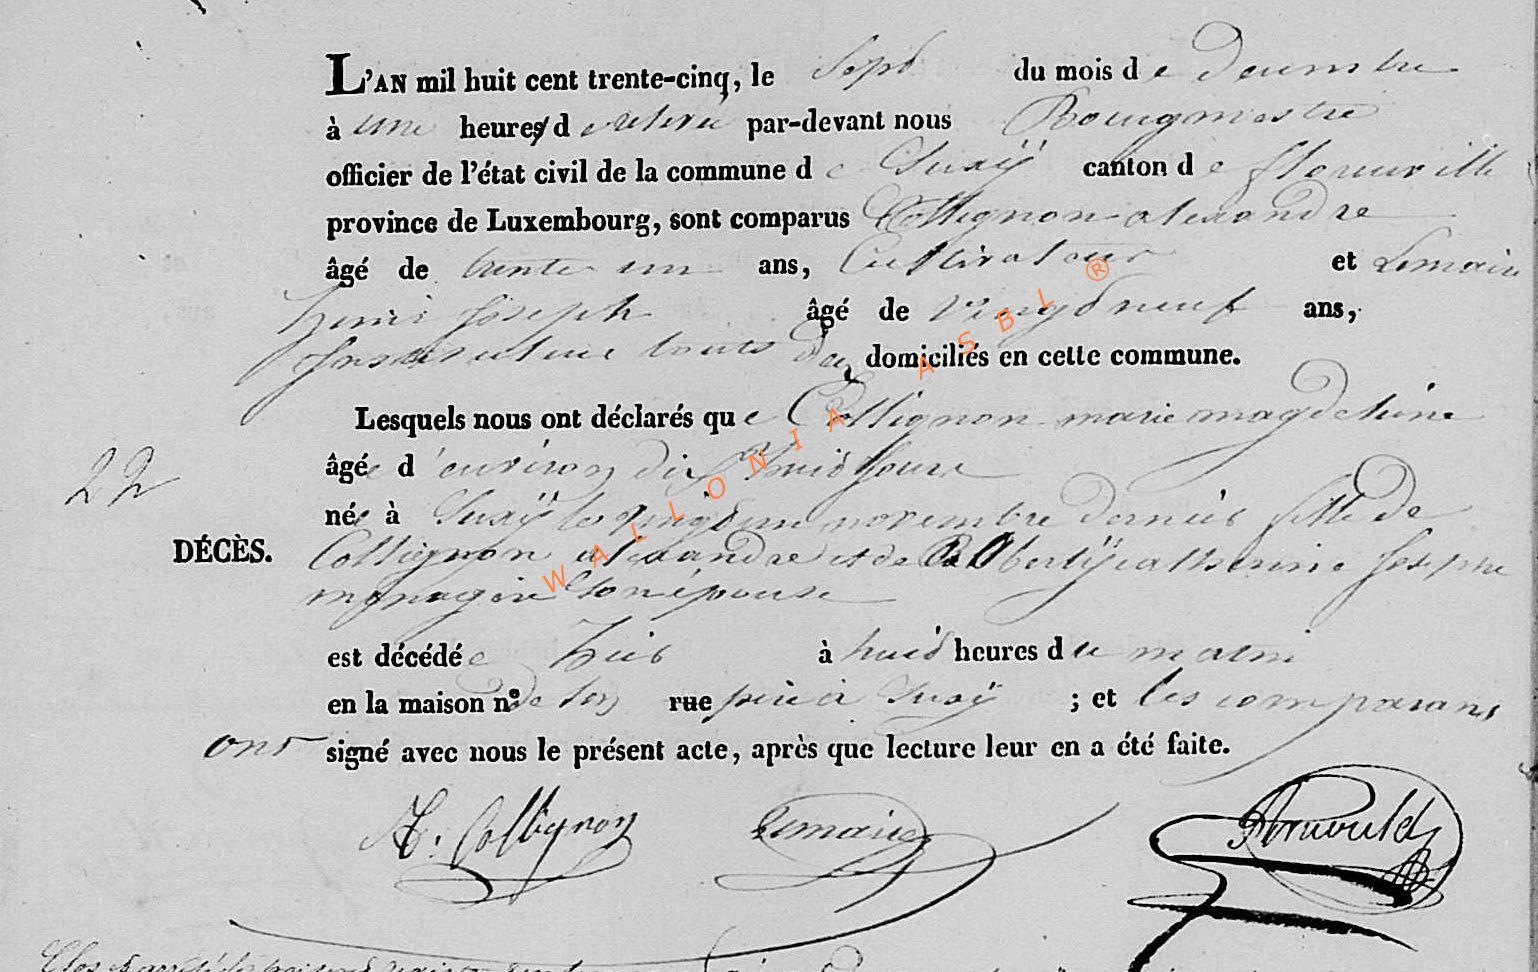 L'AN mil huit cent trente-cinq, le Sept du mois de Decembre
à une heures de relevée par-devant nous Bourgmestre
officier de l'état civil de la commune de Suxÿ canton de florenville
province de Luxembourg, sont comparus Collignon alexandre
âgé de trente un ans, Cultivateur et Lemaire
henri Joseph âgé de vingt neuf ans,
Instituteur touts deux domiciliés en cette commune.
Lesquels nous ont déclarés que Collignon marie magdeleine
âgée d'environ dix huit Jours
22
née à Suxÿ le vingt un novembre dernier fille de
DÉCÈS.
Collignon alexandre et de Oberty catherine Josephe
menagère son épouse
est décédée hier à huit heures du matin
en la maison nº de son rue père à Suxÿ ; et les comparans
ont signé avec nous le présent acte, après que lecture leur en a été faite.
A. Collignon Lemaire Arnould
WALLONIA ASBL ®